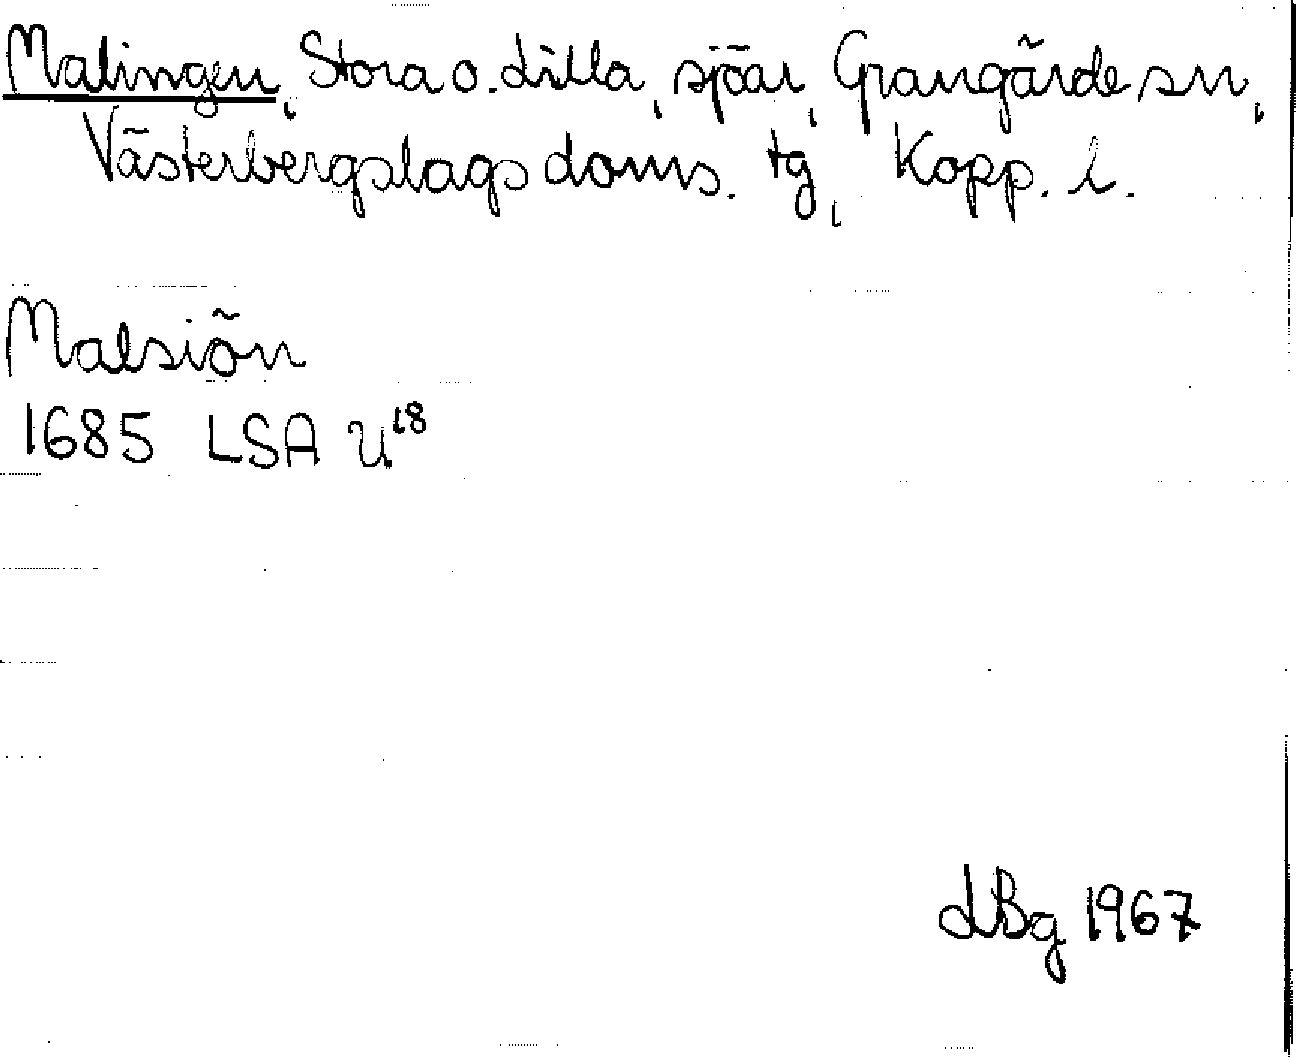 Malingen, Stora o. Lilla, sjöar, Grangärde sn,
Västerbergslags doms. tg, Kopp. l.
Malsiön
1685 LSA U18
LBg 1967